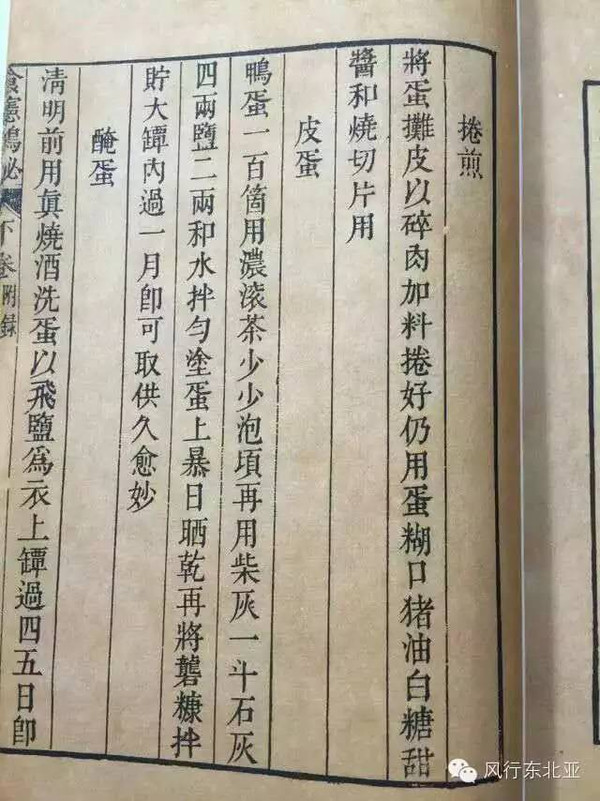 捲煎
將蛋攤皮以碎肉加料捲好仍用蛋糊口猪油白糖甜
醬和燒切片用
皮蛋
鴨蛋一百箇用濃滚茶少少泡頃再用柴灰一斗石灰
四兩鹽二兩和水拌勻塗蛋上暴日晒乾再將礱糠拌
貯大罈內過一月卽可取供久愈妙
醃蛋
淸明前用眞燒酒洗蛋以飛鹽爲衣上罈過四五日卽
食憲鴻祕
下卷附錄
风行东北亚